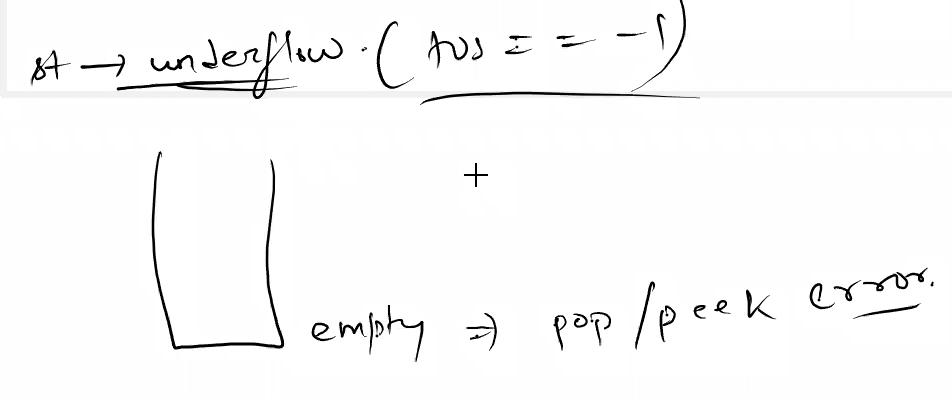 st → underflow. (tos == -1)
empty ⇒ pop/peek error.